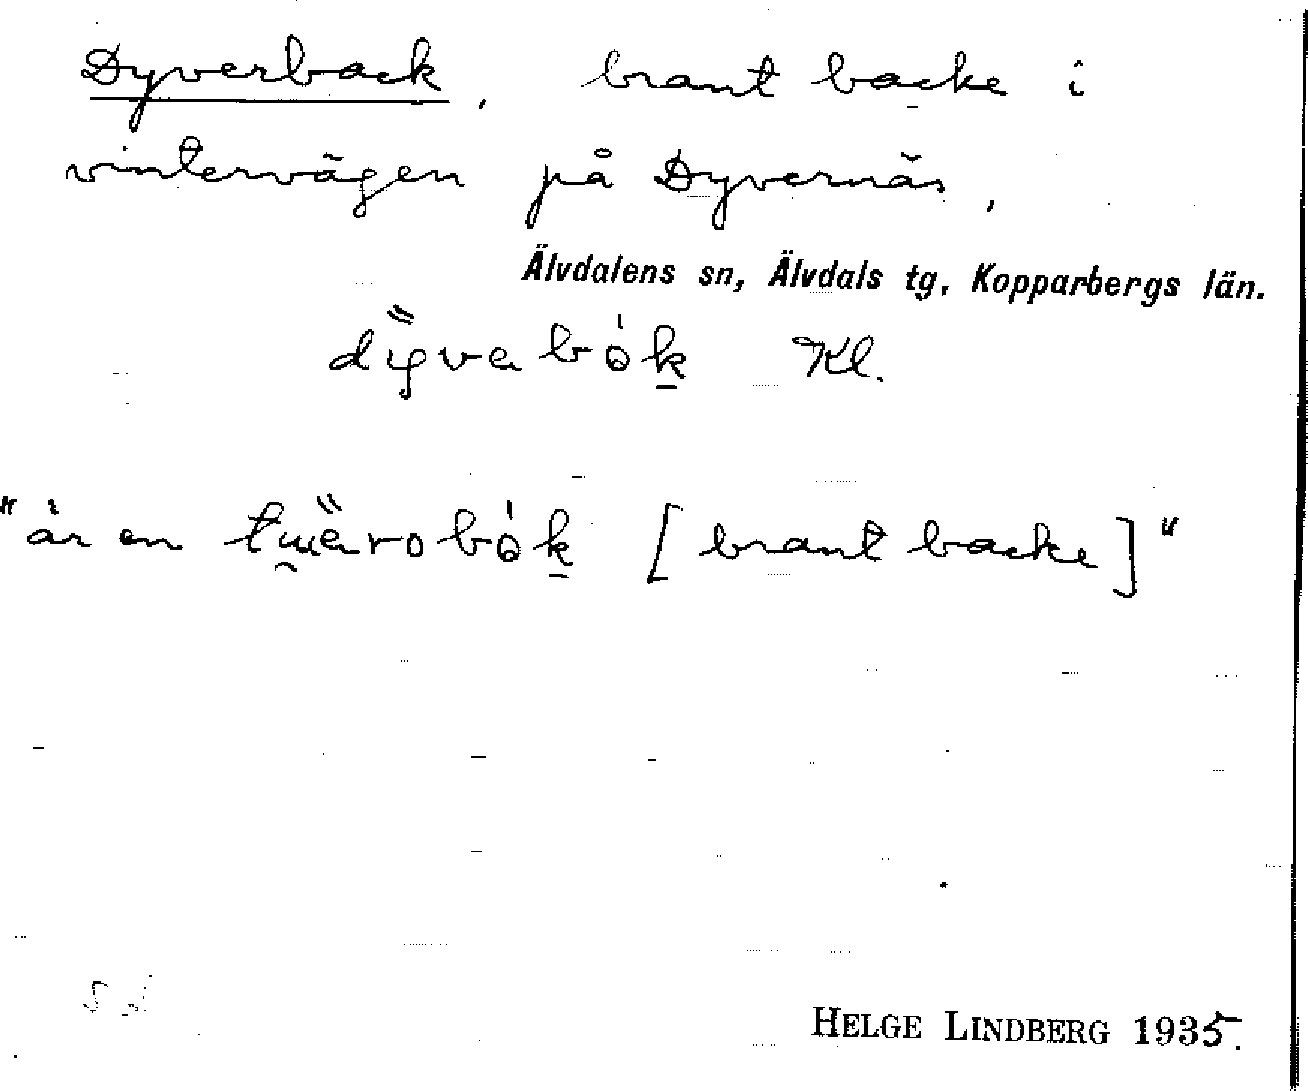 Dyverback, brant backe i
vintervägen på Dyvernäs,
Älvdalens sn, Älvdals tg, Kopparbergs län.
Kl.
"är en [brant backe]"
HELGE LINDBERG 1935.